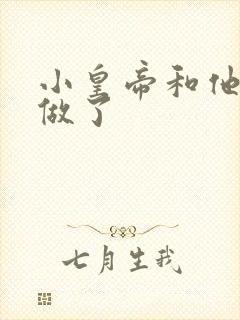 小皇帝和他
做了
七月生我